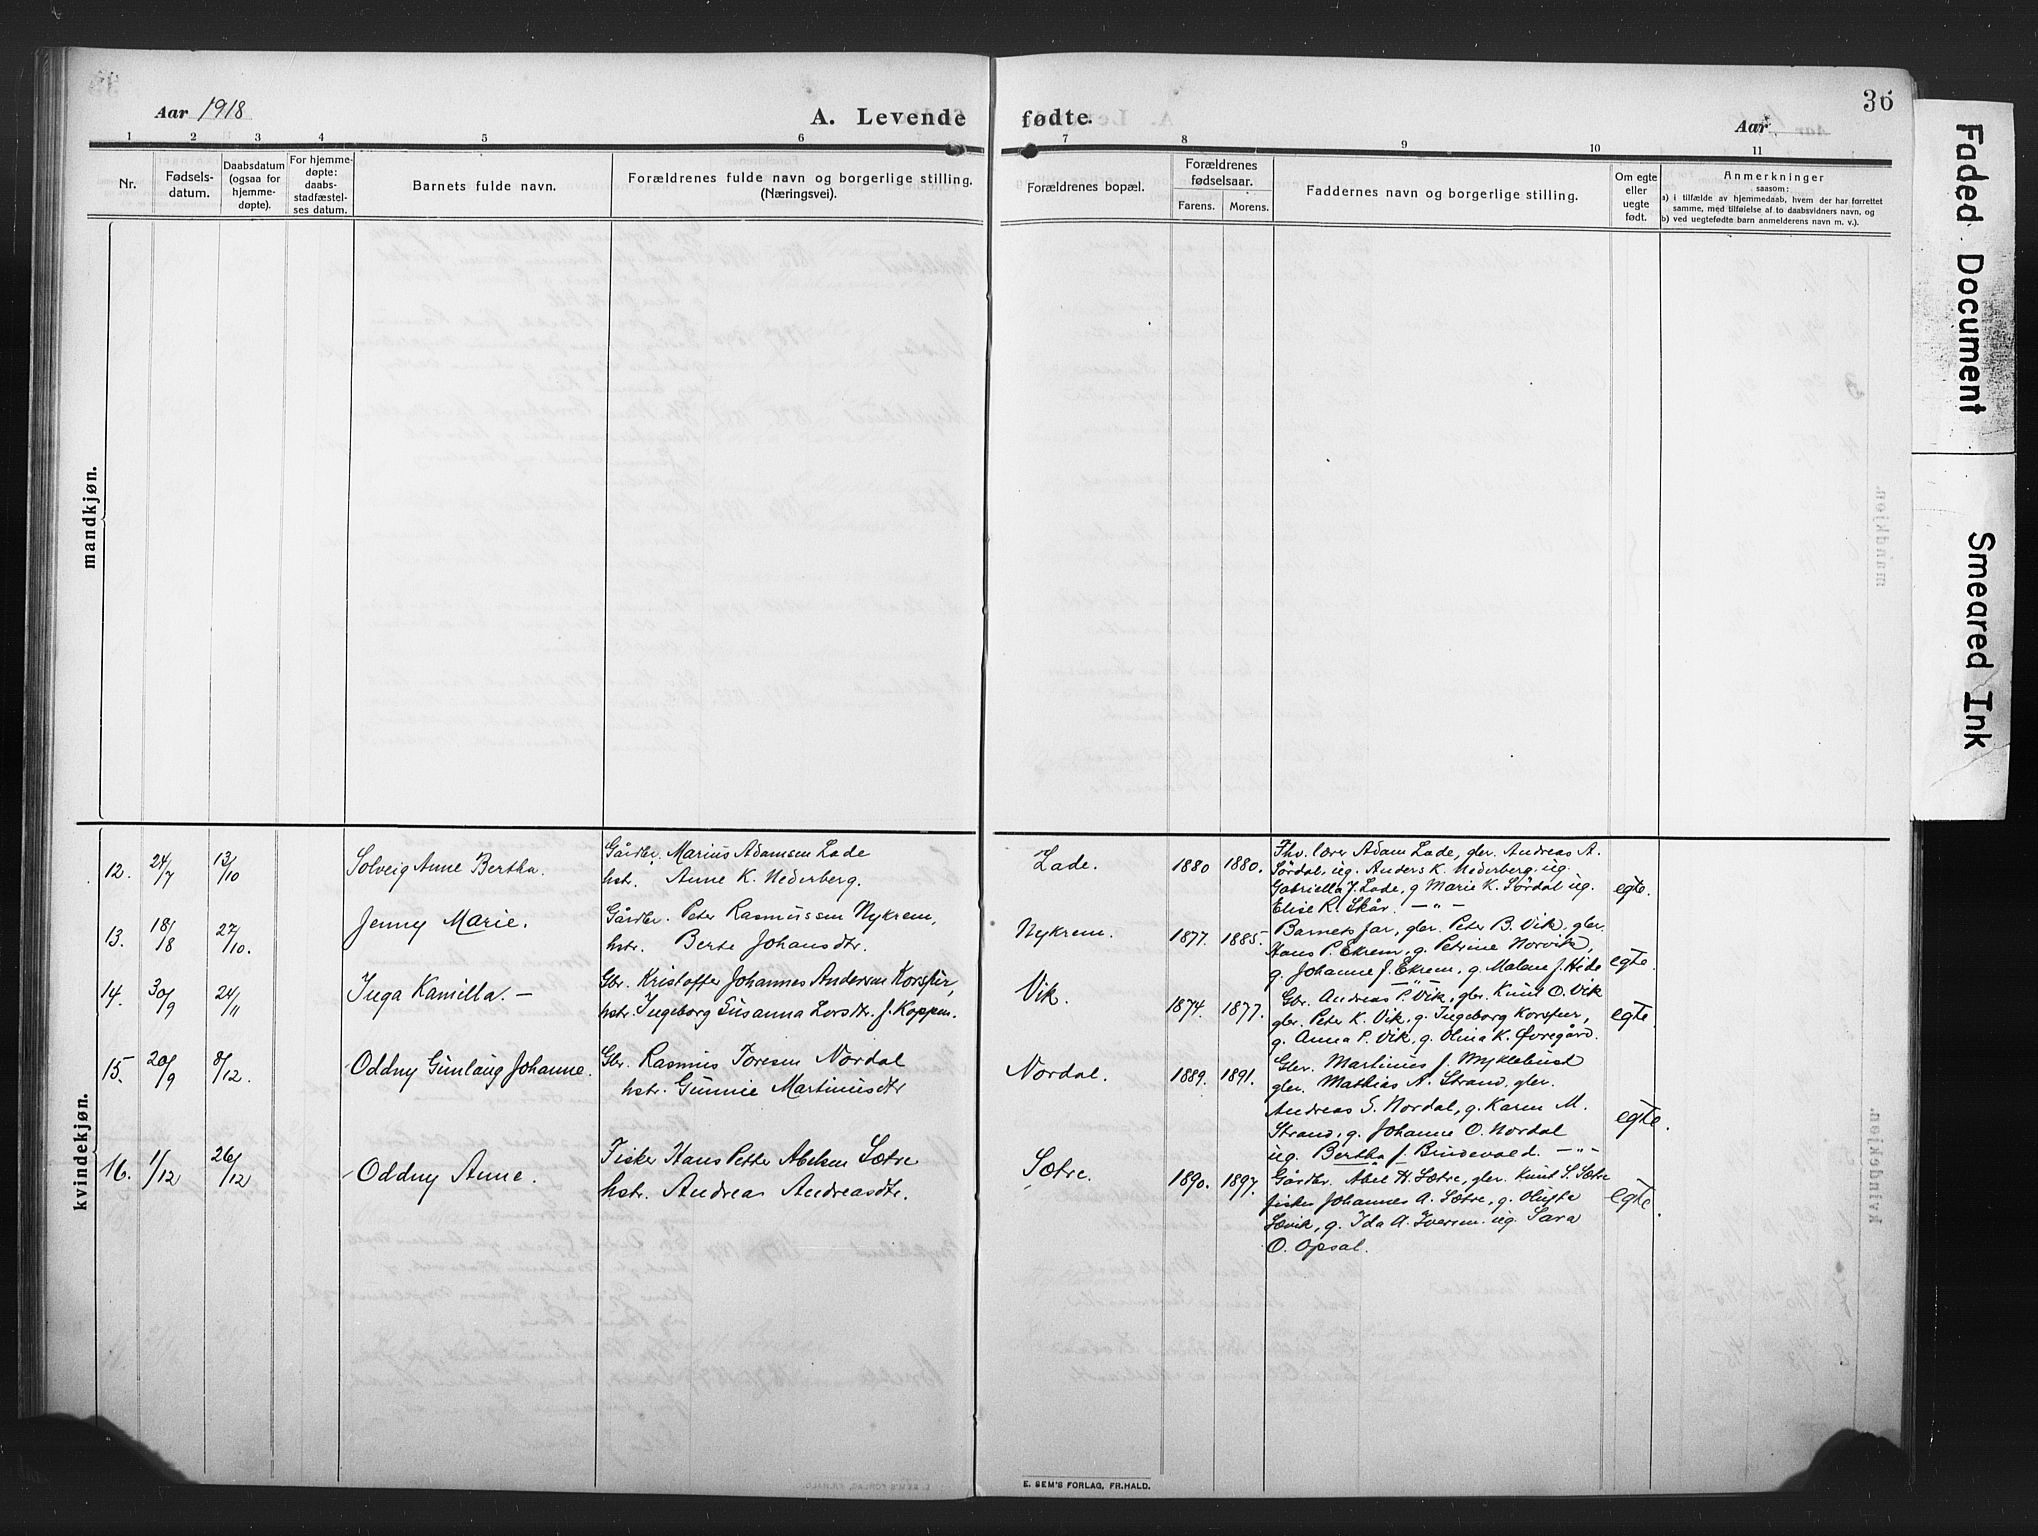 Aar 1918
A. Levende
1 2 3 4 5 6
Nr.
Fødsels-
datum.
Daabsdatum
(ogsaa for
hjemme-
døpte).
For hjemme-
døpte:
daabs-
stadfæstel-
ses datum.
Barnets fulde navn.
Forældrenes fulde navn og borgerlige stilling.
(Næringsvei).
mandkjøn.
kvindekjøn.
12. 24/7 13/10 Solveig Anne Bertha.
Gårdbr. Marius Adamsen Lade
hstr. Anne K. Nederberg.
13. 18/8 27/10. Jenny Marie.
Gårdbr. Peter Rasmussen Nykrem,
hstr. Berte Johansdtr.
14. 30/9 24/11 Inga Kamilla. —
Gbr. Kristoffer Johannes Andersen
hstr. Ingeborg Susanna Larsdtr. f. Koppen.
15. 20/9 8/12. Oddny Gunlaug Johanne.
Gbr. Rasmus Toresen Nordal
hstr. Gunnie Martinusdtr
16. 1/12 26/12 Oddny Anne.
Fisker Hans Petter Abelsen Sætre
hstr. Andrea Andreasdtr.
fødte.
36
Aar
7 8 9 10 11
Forældrenes bopæl.
Forældrenes
fødselsaar.
Farens. Morens.
Faddernes navn og borgerlige stilling.
Om egte
eller
uegte
født.
Anmerkninger
saasom:
a) i tilfælde av hjemmedaab, hvem der har forrettet
samme, med tilføielse af to daabsvidners navn, og
b) ved uegtefødte barn anmelderens navn m. v.).
Lade. 1880 1880.
Fhv. lærer Adam Lade, gbr. Andreas A.
Sørdal, ug. Anders K. Nederberg, ug.
Gabriella J. Lade, g Marie K. Sørdal ug.
Elise R. Skår. — " —
egte.
Nykrem. 1877. 1885.
Barnets far, gbr. Peter B. Vik, gbr.
Hans P. Ekrem, g. Petrine Norvik,
g. Johanne J. Ekrem, g. Malene J. Hide
egte.
Vik. 1874. 1877.
Gbr. Andreas P. Vik, gbr. Knut O. Vik
gbr. Peter K. Vik, g. Ingeborg
g. Anna P. Vik, g. Olina K. Øvregård.
egte.
Nordal. 1889. 1891.
Gbr. Martinus J. Myklebust
gbr. Mathias A. Strand, gbr.
Andreas S. Nordal, g. Karen M.
Strand, g. Johanne O. Nordal
ug. Bertha J. Brudevold. — " —
egte.
Sætre. 1890. 1897.
Gårdbr. Abel H. Sætre, gbr. Knut S. Sætre
fisker Johannes A. Sætre, g. Olufta
Sævik, g. Ida A. ug. Sara
O. Opsal.
egte.
E. SEM'S FORLAG, FR.HALD.
Faded Document
Smeared Ink